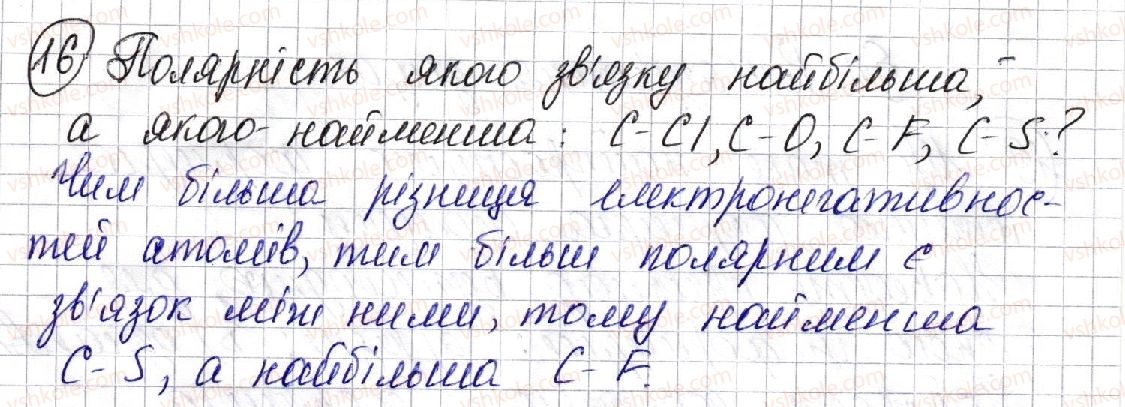 16 Полярність якого зв'язку найбільша,
а якого найменша: C-Cl, C-O, C-F, C-S?
Чим більша різниця електронегативнос-
тей атомів, тим більш полярним є
зв'язок між ними, тому найменша
C-S, а найбільша C-F.